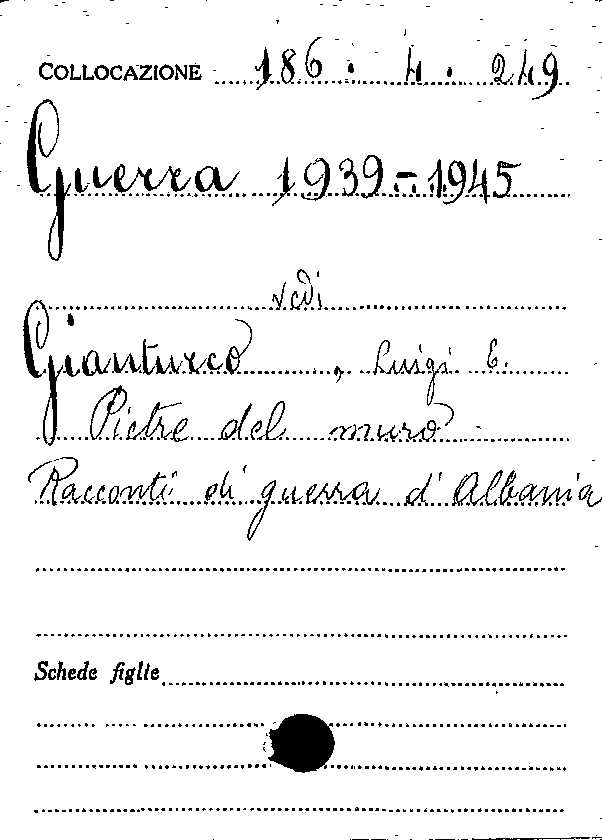 COLLOCAZIONE 186. 4. 249
Guerra 1939-1945
vedi
Gianturco, Luigi E.
Pietre del muro.
Racconti di guerra d'Albania
Schede figlie